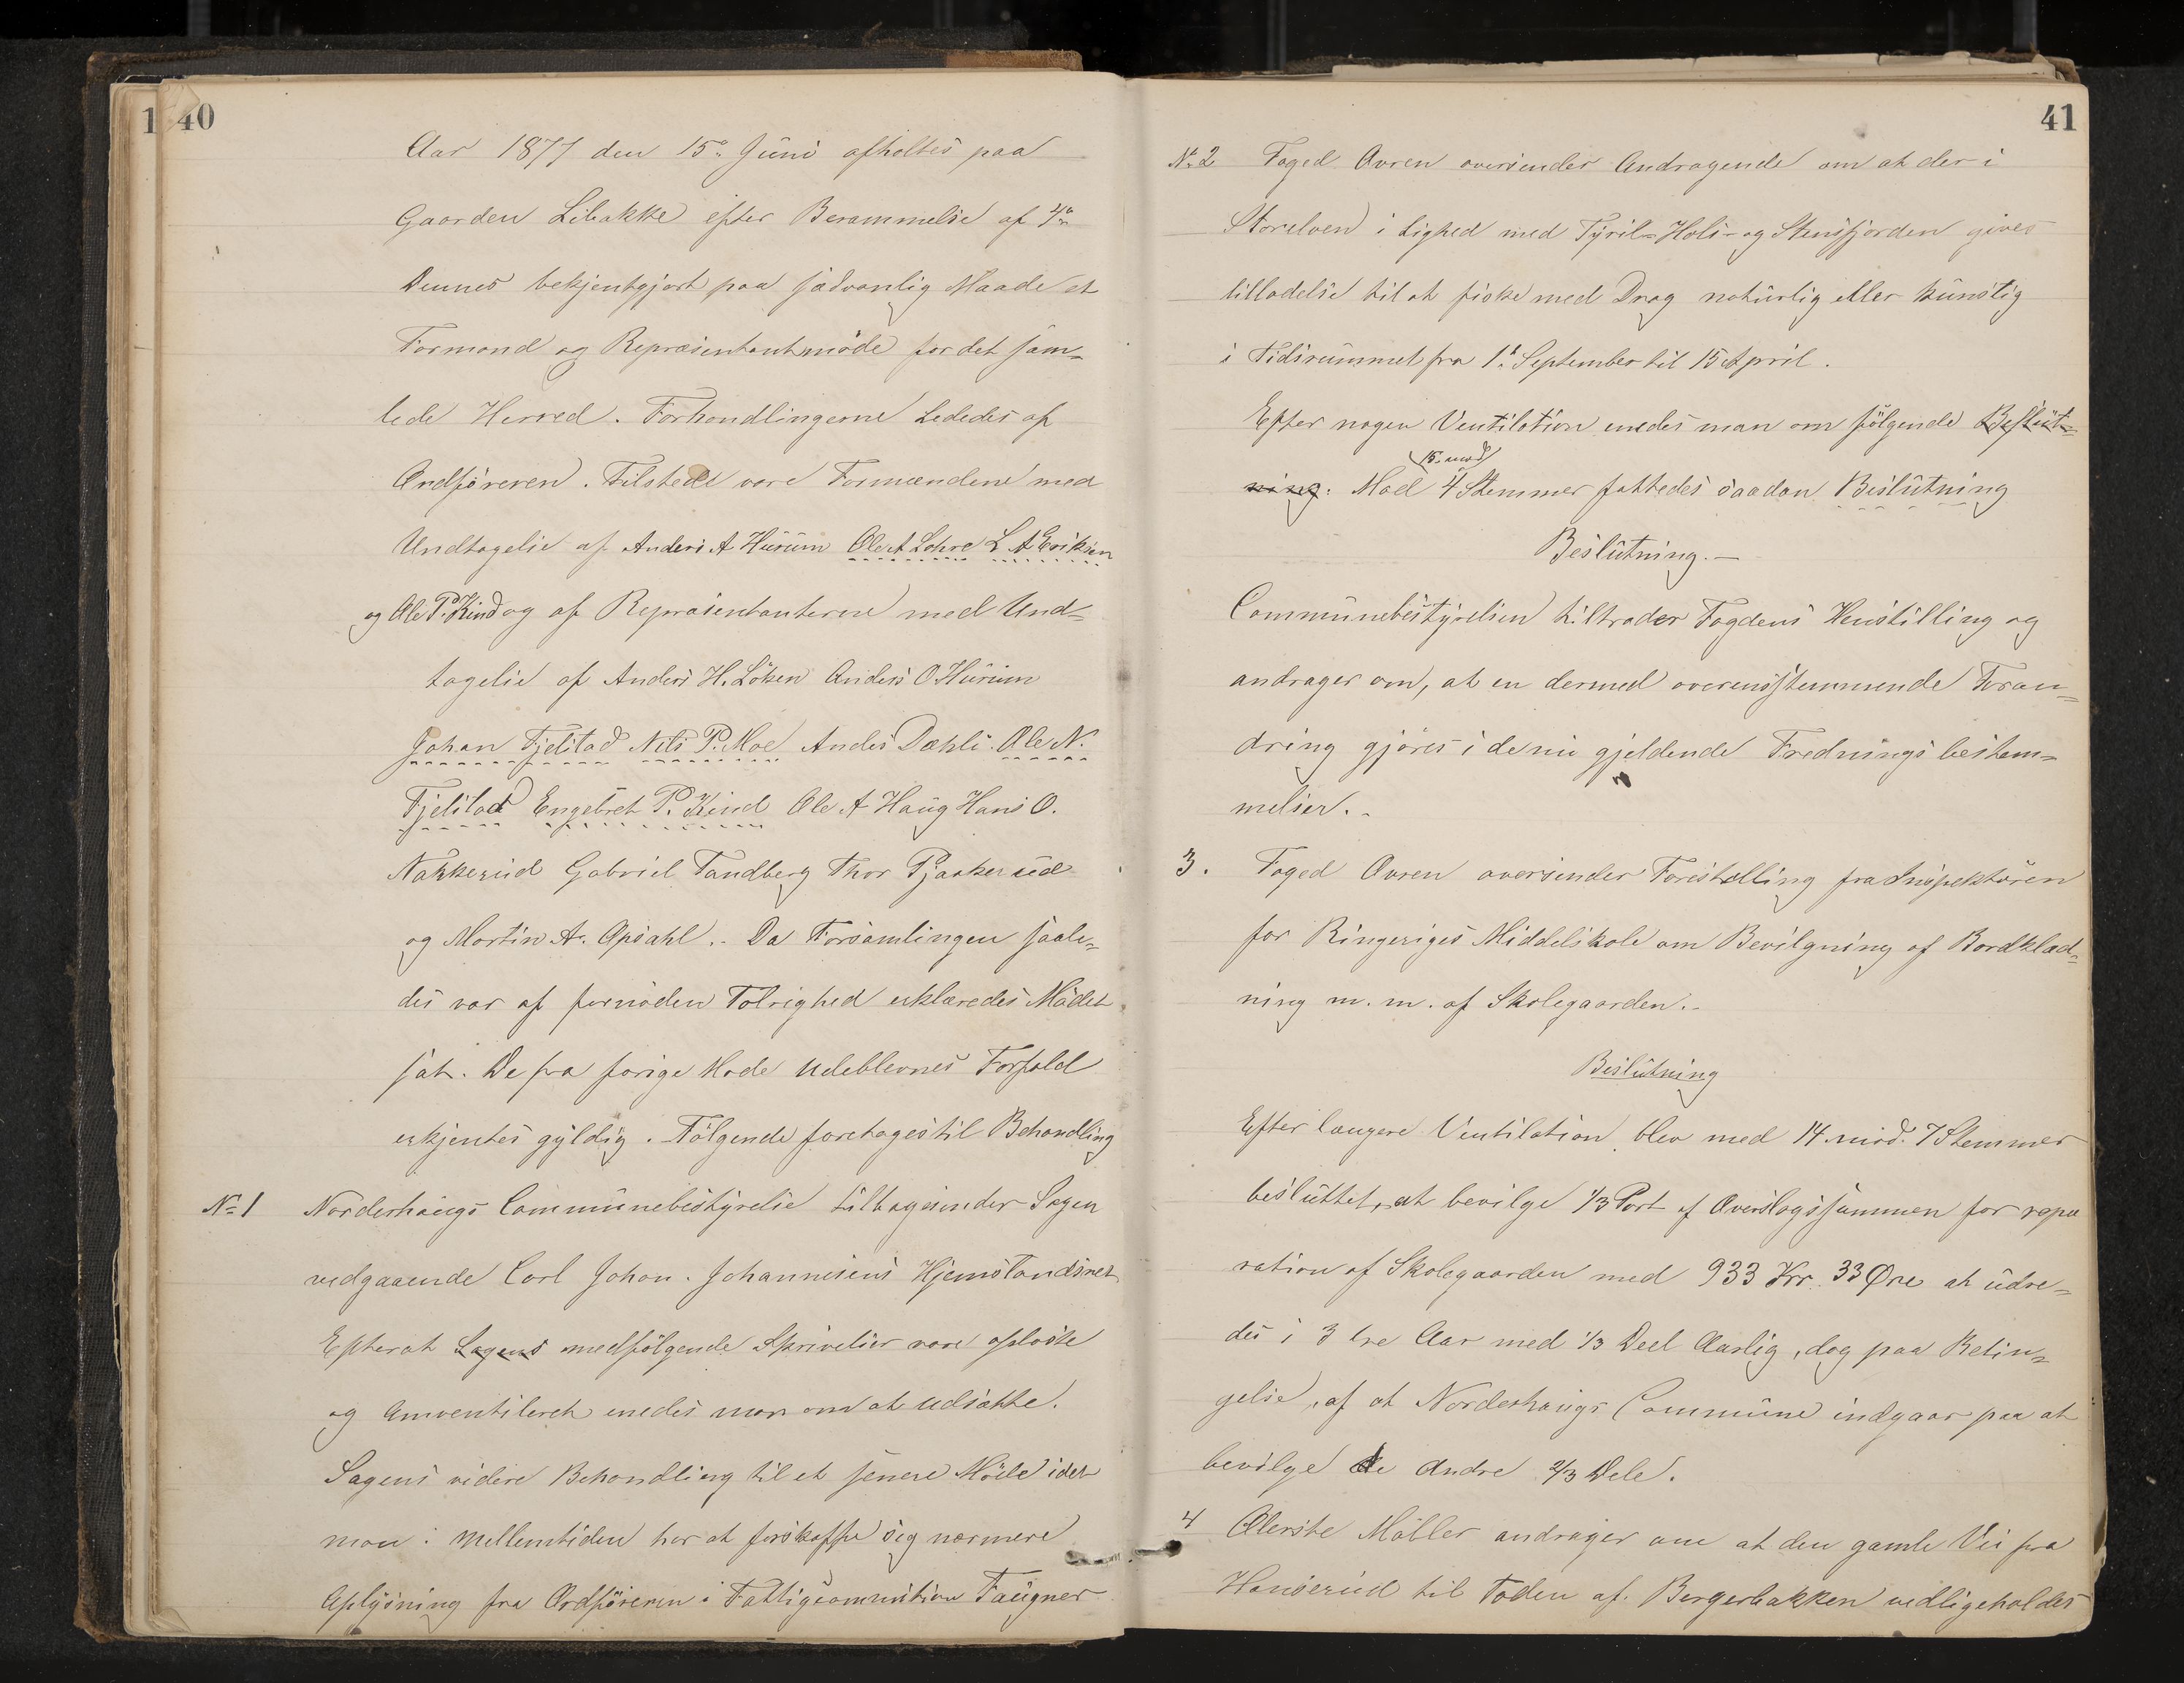 1 40
Aar 1877 den 15de Juni afholtes paa
Gaarden Libakke efter Berammelse af 4de
Dennes bekjentgjort paa sædvanlig Maade et
Formand og Repræsentantmöde for det sam-
lede Herred. Forhandlingerne Lededes af
Ordföreren. Tilstede vare Formændene med
Undtagelse af Anders A Hurum Ole A Lohre L A Eriksen
og Ole P. Kind og af Repræsentanterne med Und-
tagelse af Anders H. Löken Anders O. Hurum
Johan Fjelstad Nils P. Moe Andes Dæhli. Ole N.
Fjelstad Engebret P. Kind Ole A Haug Hans O.
Nakkerud Gabriel Tandberg Thor Pjaakerud
og Martin A. Opsahl.- Da Forsamlingen saale-
des var af fornöden Talrighed erklæredes Mödet
sat. De fra forige Mode Udeblevnes Forfald
erkjentes gyldig. Fölgende foretages til Behandling
No 1 Norderhaugs Communebestyrelse tilbagesender Sagen
vedgaaende Carl Johan Johannesens Hjemstandsret
Efterat Sagens medfölgende Skrivelser vare oplæste
og Omventileret enedes man om at udsætte.
Sagens videre Behandling til et senere Möde idet
man i Mellemtiden har at forskaffe sig nærmere
Oplysning fra Ordföreren i Fattigcommission Faugner
41
No 2 Foged Ovren oversender Andragende om at der i
Storelven i Lighed med Tyril- Hols- og Stensfjorden gives
tilladelse til at fiske med Drag naturlig eller kunstig
i Tidsrummet fra 1ste September til 15 April.
Efter nogen Ventilation enedes man om fölgende Beslut-
15 mod
ning. Mod 4 Stemmer fattedes saadan Beslutning
Beslutning.-
Communebestyrelsen tiltræder Fogdens Henstilling og
andrager om, at en dermed overensstemmende Foran-
dring gjöres i de nu gjeldende Frednings bestem-
melser.-
3. Foged Ovren oversender Forestilling fra Inspektören
for Ringeriges Middelskole om Bevilgning af Bordklæd-
ning m. m. af Skolegaarden.-
Beslutning
Efter længere Ventilation blev med 14 mod 7 Stemmer
besluttet, at bevilge 1/3 Part af Overslagssummen for repa
ration af Skolegaarden med 933 Krr. 33 Øre at udre-
des i 3 tre Aar med 1/3 Deel Aarlig, dog paa Betin-
gelse, af at Norderhaugs Commune indgaar paa at
bevilge de Andre 2/3 Dele.
4 Olerste Möller andrager om at den gamle Vei fra
Hanserud til Foden af Borgerbakken vedligeholdes